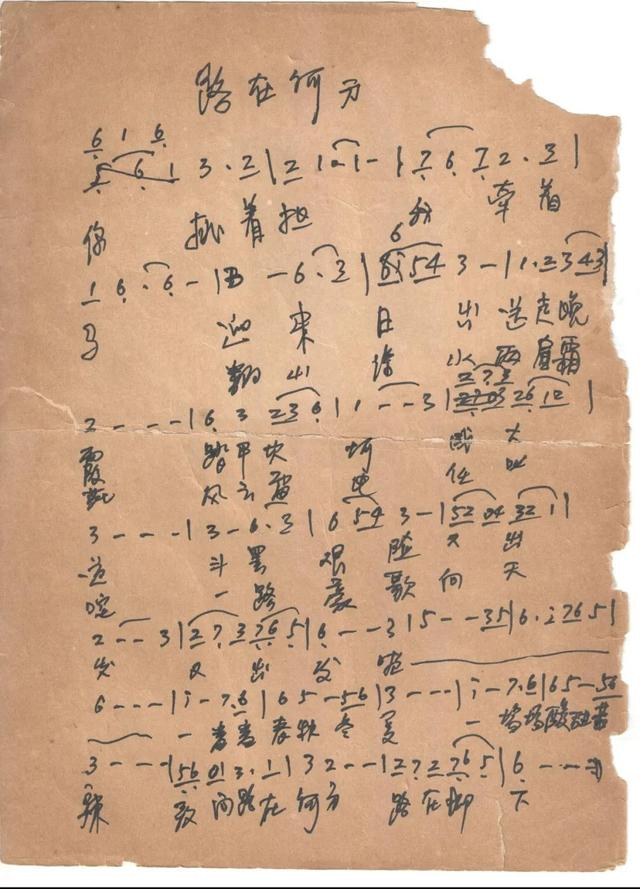 路在何方
6 1 6
3·2|2 1·1-|7 6 7 2·3|
你 挑着担 我 牵着
6
1 6·6-|3 -6·3|6i54 3-|1·2343|
马 迎来日出送走晚
翻山涉水两肩霜
2 7 3
2----|6 3 236|1--3| 2612|
霞 踏平坎坷 成大
风云雷电 任叱
3---|3-6·3|6 54 3-|52 04 32 1|
道 斗罢艰险 又出
咤 一路豪歌 向天
2--3|27 3765|6---3|5--35|6·i765|
发 又出发 啦
6---|i-7·6|65-56|3---|i-7·6|65-56
一番番春秋冬夏 一场场酸甜苦
3---|56 01 3·1|32---|27 2765|6----
辣 敢问路在何方 路在脚下